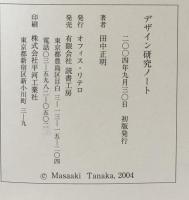 デザイン研究ノート
二〇〇四年九月三〇日　初版発行
著者　田中正明
発行　オフィス・リテロ
発売　有限会社 読書工房
東京都豊島区目白三-一三-一八-五〇四
電話〇三-五九
印刷　株式会社平河工業社
東京都新宿区新小川町三-九
© Masaaki Tanaka, 2004